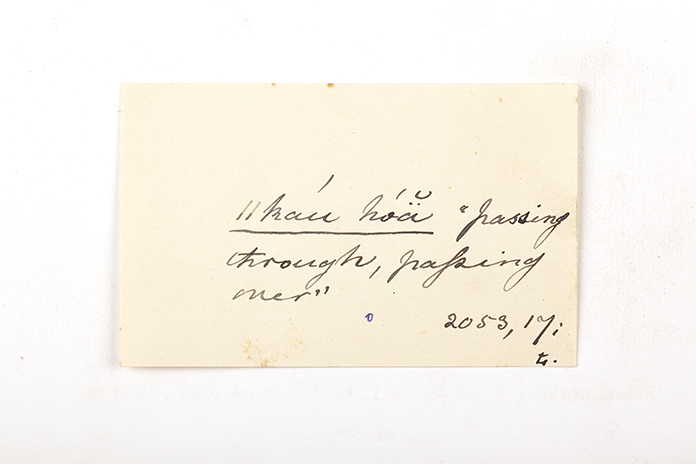 ǁkáu hóä̆ "passing
through, paſsing
over"
o
2053, 17;
t.